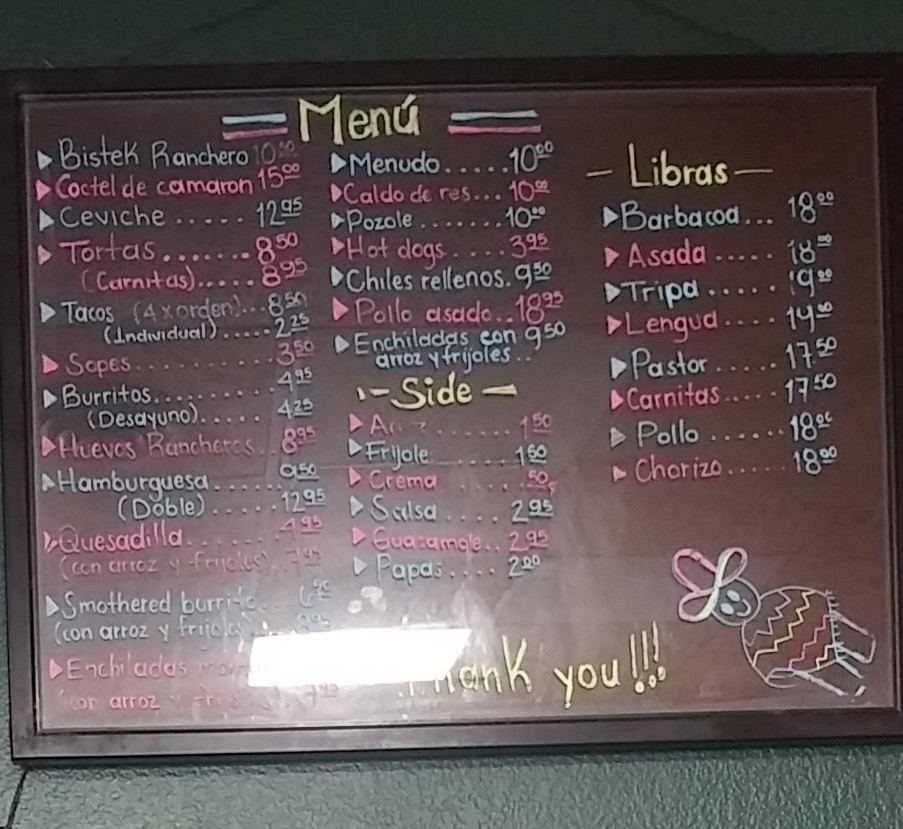 Menú
▶Bistek Ranchero 10.50
▶Coctel de camaron 15⁰⁰
▶Ceviche ..... 12⁹⁵
▶Tortas....... 8⁵⁰
(Carnitas)..... 8⁹⁵
▶Tacos (4 x orden)... 8⁵⁰
(Individual)..... 2²⁵
▶Sopes........... 3⁵⁰
▶Burritos......... 4⁹⁵
(Desayuno)..... 4²⁵
▶Huevos Rancheros.. 8⁹⁵
▶Hamburguesa...... 9⁵⁰
(Doble)...... 12⁹⁵
▶Quesadilla....... 4⁹⁵
(con arroz y frijoles)..
▶Smothered burrito..
(con arroz y frijoles)
▶Enchiladas
con arroz y
▶Menudo..... 10⁰⁰
▶Caldo de res... 10⁰⁰
▶Pozole........ 10⁰⁰
▶Hot dogs.... 3⁹⁵
▶Chiles rellenos. 9⁵⁰
▶Pollo asado.. 18⁹⁵
▶Enchiladas con 9⁵⁰
arroz y frijoles..
Side
▶ ........ 1⁵⁰
▶Frijole...... 1⁵⁰
▶Crema ..... .50
▶Salsa .... 2⁹⁵
▶Guacamole.. 2⁹⁵
▶Papas.... 2⁰⁰
— Libras —
▶Barbacoa... 18⁰⁰
▶Asada ..... 18⁰⁰
▶Tripa ..... 19⁰⁰
▶Lengua.... 19⁰⁰
▶Pastor..... 17⁵⁰
▶Carnitas.... 17⁵⁰
▶Pollo ...... 18⁰⁰
▶Chorizo..... 18⁰⁰
Thank you!!!